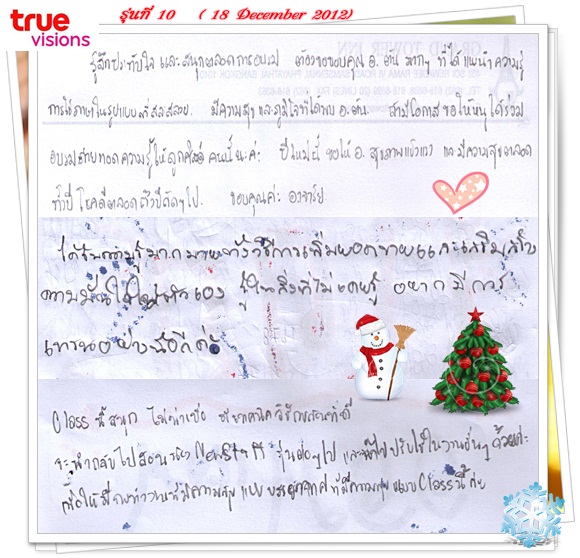 true
visions
รุ่นที่ 10 ( 18 December 2012)
รู้สึกประทับใจ และสนุกตลอดการอบรม ต้องขอขอบคุณ อ. มากๆ ที่ได้แนะนำความรู้
การใช้ภาษาในรูปแบบที่สละสลวย. มีความสุข และภูมิใจที่ได้พบ อ. ถ้ามีโอกาส ขอให้หนูได้ร่วม
อบรมถ่ายทอดความรู้ให้ลูกศิษย์คนนี้นะค่ะ ปีใหม่นี้ ขอให้ อ. สุขภาพแข็งแรง และมีความสุขตลอด
ทั้งปี โชคดีตลอด ปีถัดๆ ไป. ขอบคุณค่ะ อาจารย์
ได้รับความรู้มากมาย ทั้งวิธีการเพิ่มยอดขายและเสริมสร้าง
ความมั่นใจให้ตัวเอง รู้ในสิ่งที่ไม่เคยรู้ อยากมีการ
อย่างนี้อีกค่ะ
Class นี้สนุก ไม่น่าเบื่อ
จะนำกลับไปสอนน้อง New Staff รุ่นต่อๆ ไป และนำไปปรับใช้ในงานอื่นๆ ด้วยค่ะ
เพื่อให้ ทำงานที่มีความสุข แบบ ที่มีความสุขแบบ Class นี้ค่ะ